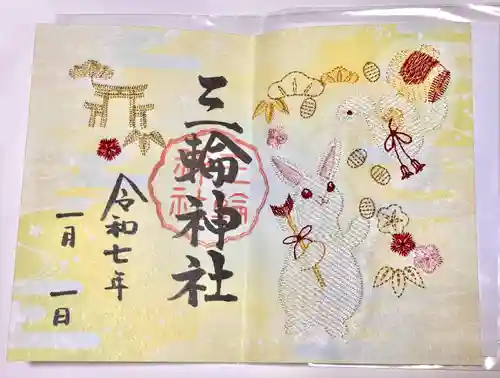 三輪神社
令和七年
一月 一日
三輪神社